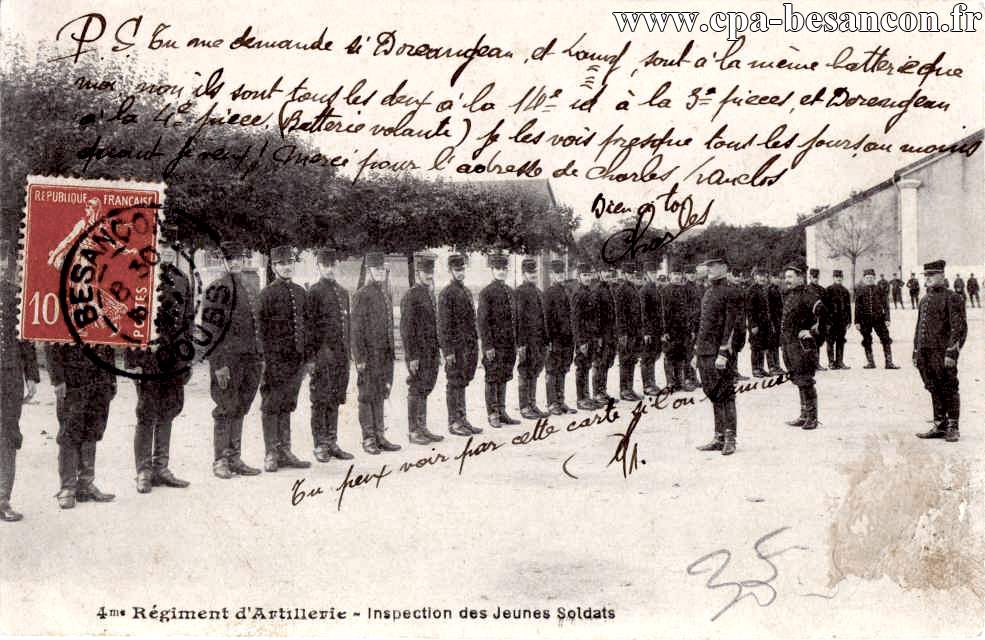 www.cpa-besancon.fr
P.S. Tu me demande si Doreangean, et, sont à la même batterie que
moi, non ils sont tous les deux à la 14e id à la 3e pieces, et Doreangean
à la 4e pièce, (Batterie volante) Je les vois presque tous les jours, au moins
quant je veux! Merci pour l'adresse de Charles
Bien à toi
Charles
REPUBLIQUE FRANÇAISE
10c
POSTES
BESANCON
DOUBS
Tu peux voir par cette carte si l'on s'amuse
35
4me Régiment d'Artillerie - Inspection des Jeunes Soldats